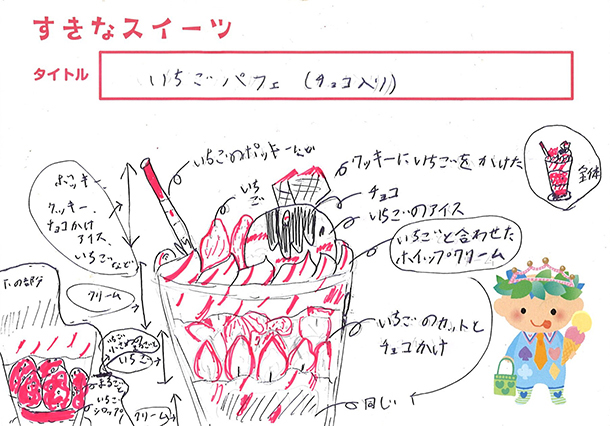 すきなスイーツ
タイトル
いちごパフェ (チョコ入り)
いちごのポッキー
クッキーにいちごをかけた
全体
チョコ
いちごのアイス
いちご
いちごと合わせた
ホイップクリーム
ポッキー、
クッキー、
チョコかけ
アイス、
いちごなど
下の部分
クリーム
いちご
いちごのカットと
チョコかけ
まるごと
いちご
シロップ
クリーム
同じ